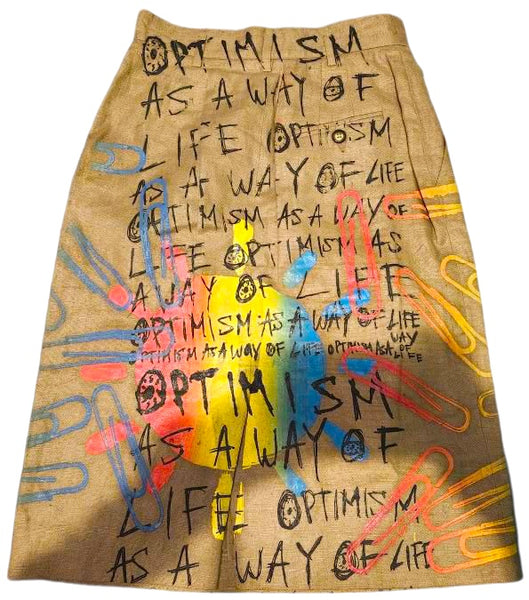 OPTIMISM
AS A WAY OF
LIFE OPTIMISM
AS A WAY OF LIFE
OPTIMISM AS A WAY OF
LIFE OPTIMISM AS
A WAY OF LIFE
OPTIMISM AS A WAY OF LIFE
OPTIMISM AS A WAY OF LIFE OPTIMISM AS A WAY OF LIFE
OPTIMISM
AS A WAY OF
LIFE OPTIMISM
AS A WAY OF LIFE